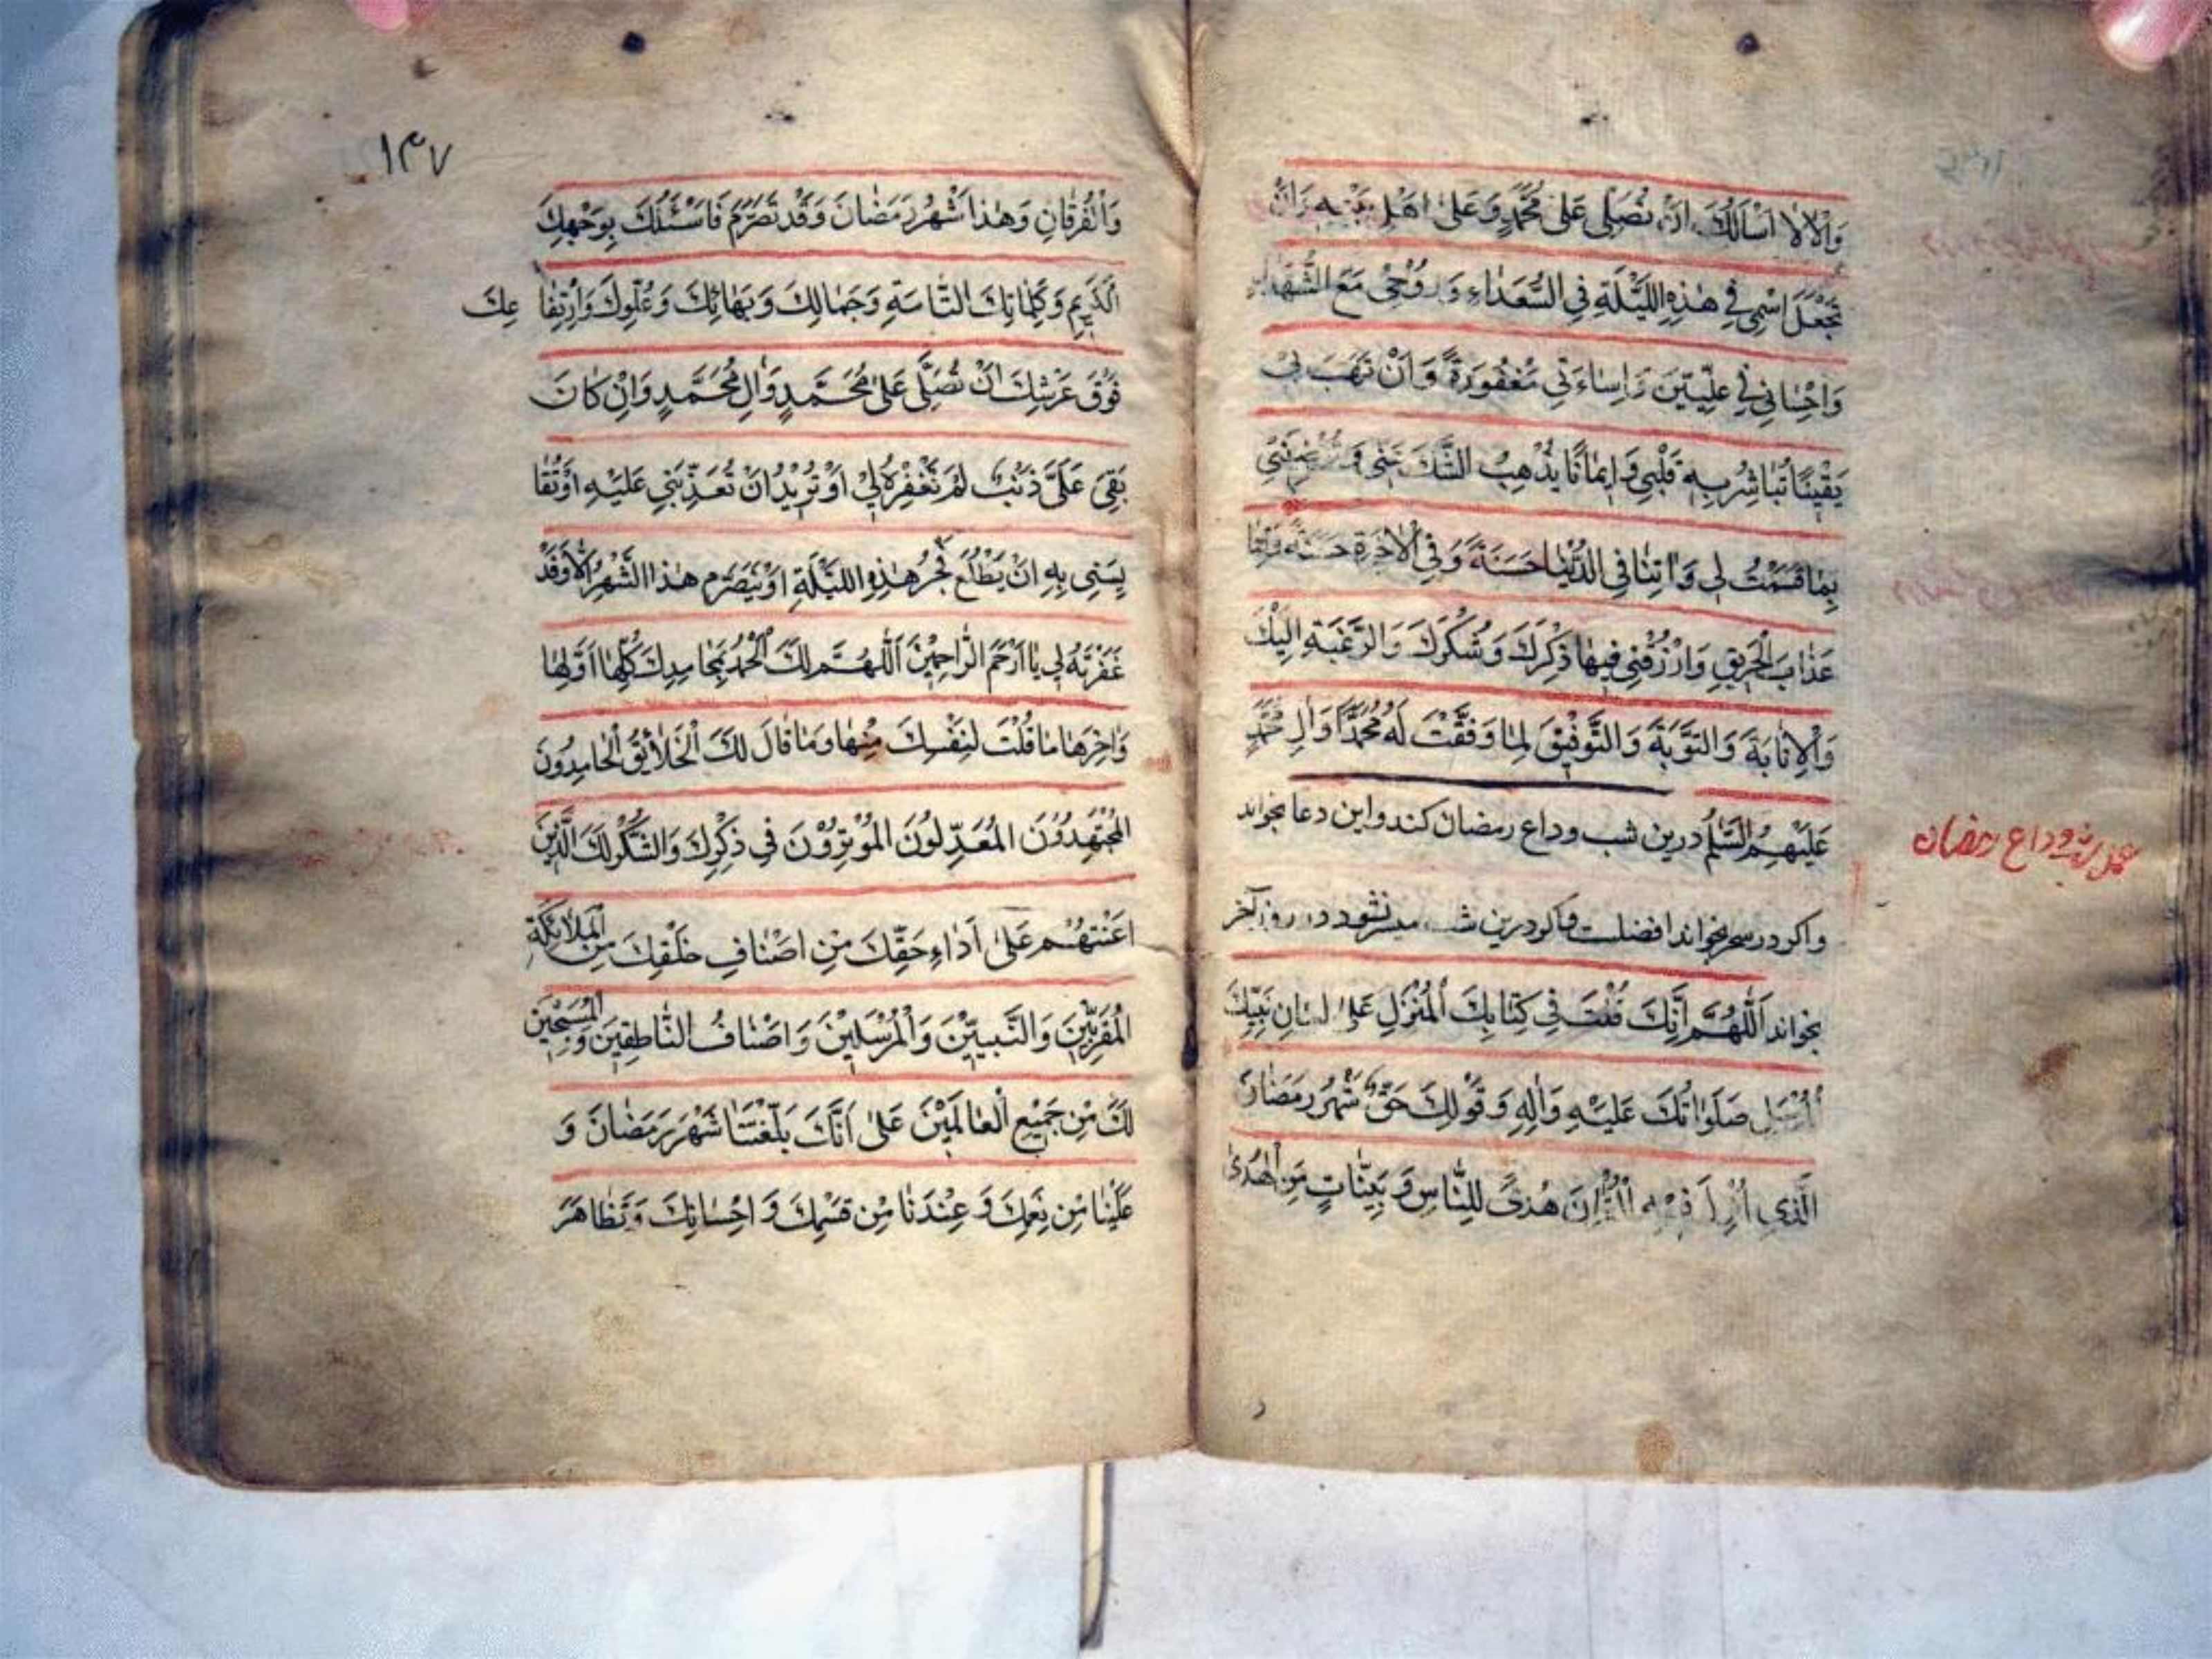 وَالْآلَاءُ اَسْاَلُكَ اَنْ تُصَلِّیَ عَلٰی مُحَمَّدٍ وَعَلٰی اَهْلِ بَیْتِهِ وَاَنْ
تَجْعَلَ اسْمِی فِی هٰذِهِ اللَّیْلَةِ فِی السُّعَدَاءِ وَرُوْحِی مَعَ الشُّهَدَاءِ
وَاِحْسَانِی فِی عِلِّیِّیْنَ وَاِسَاءَتِی مَغْفُورَةً وَاَنْ تَهَبَ لِی
یَقِیْنًا تُبَاشِرُ بِهِ قَلْبِی وَاِیمَانًا یُذْهِبُ الشَّكَّ عَنِّی وَ
بِمَا قَسَمْتَ لِی وَاٰتِنَا فِی الدُّنْیَا حَسَنَةً وَفِی الْاٰخِرَةِ حَسَنَةً وَقِنَا
عَذَابَ الْحَرِیقِ وَارْزُقْنِی فِیهَا ذِكْرَكَ وَشُكْرَكَ وَالرَّغْبَةِ اِلَیْكَ
وَالْاِنَابَةَ وَالتَّوْبَةَ وَالتَّوْفِیْقَ لِمَا وَفَّقْتَ لَهُ مُحَمَّدًا وَاٰلِ مُحَمَّدٍ
عَلَیْهِمُ السَّلٰمُ درین شب وداع رمضان کند واین دعا بخواند
عمل شب وداع رمضان
واکر در سحر بخواند افضلست واکر درین شب میسر نشود در روز آخر
بخواند اَللّٰهُمَّ اِنَّكَ قُلْتَ فِی كِتَابِكَ الْمُنْزَلِ عَلٰی لِسَانِ نَبِیِّكَ
الْمُرْسَلِ صَلَوَاتُكَ عَلَیْهِ وَاٰلِهِ وَقَوْلُكَ حَقٌّ شَهْرُ رَمَضَانَ
الَّذِی اُنْزِلَ فِیْهِ الْقُرْاٰنُ هُدًی لِلنَّاسِ وَبَیِّنَاتٍ مِنَ الْهُدٰی
۱۳۷
وَالْفُرْقَانِ وَهٰذَا شَهْرُ رَمَضَانَ وَقَدْ تَصَرَّمَ فَاَسْئَلُكَ بِوَجْهِكَ
الْكَرِیمِ وَكَلِمَاتِكَ التَّامَّةِ وَجَمَالِكَ وَبَهَائِكَ وَعُلُوِّكَ وَارْتِفَا عِكَ
فَوْقَ عَرْشِكَ اَنْ تُصَلِّیَ عَلٰی مُحَمَّدٍ وَاٰلِ مُحَمَّدٍ وَاِنْ كَانَ
بَقِیَ عَلَیَّ ذَنْبٌ لَمْ تَغْفِرْهُ لِی اَوْ تُرِیْدُ اَنْ تُعَذِّبَنِی عَلَیْهِ اَوْ تُقَا
یِسَنِی بِهِ اَنْ یَطْلُعَ فَجْرُ هٰذِهِ اللَّیْلَةِ اَوْ یَتَصَرَّمَ هٰذَا الشَّهْرُ اِلَّا وَقَدْ
غَفَرْتَهُ لِی یَا اَرْحَمَ الرَّاحِمِیْنَ اَللّٰهُمَّ لَكَ الْحَمْدُ بِمَحَامِدِكَ كُلِّهَا اَوَّلِهَا
وَاٰخِرِهَا مَا قُلْتَ لِنَفْسِكَ مِنْهَا وَمَا قَالَ لَكَ الْخَلَائِقُ الْحَامِدُونَ
الْمُجْتَهِدُوْنَ الْمُعَدِّلُوْنَ الْمُؤْثِرُوْنَ فِی ذِكْرِكَ وَالشُّكْرِ لَكَ الَّذِیْنَ
اَعَنْتَهُمْ عَلٰی اَدَاءِ حَقِّكَ مِنْ اَصْنَافِ خَلْقِكَ مِنَ الْمَلَائِكَةِ
الْمُقَرَّبِیْنَ وَالنَّبِیِّیْنَ وَالْمُرْسَلِیْنَ وَاَصْنَافُ النَّاطِقِیْنَ وَالْمُسَبِّحِیْنَ
لَكَ مِنْ جَمِیْعِ الْعَالَمِیْنَ عَلٰی اَنَّكَ بَلَّغْتَنَا شَهْرَ رَمَضَانَ وَ
عَلَیْنَا مِنْ نِعَمِكَ وَعِنْدَنَا مِنْ قِسَمِكَ وَاِحْسَانِكَ وَتَظَاهُرِ